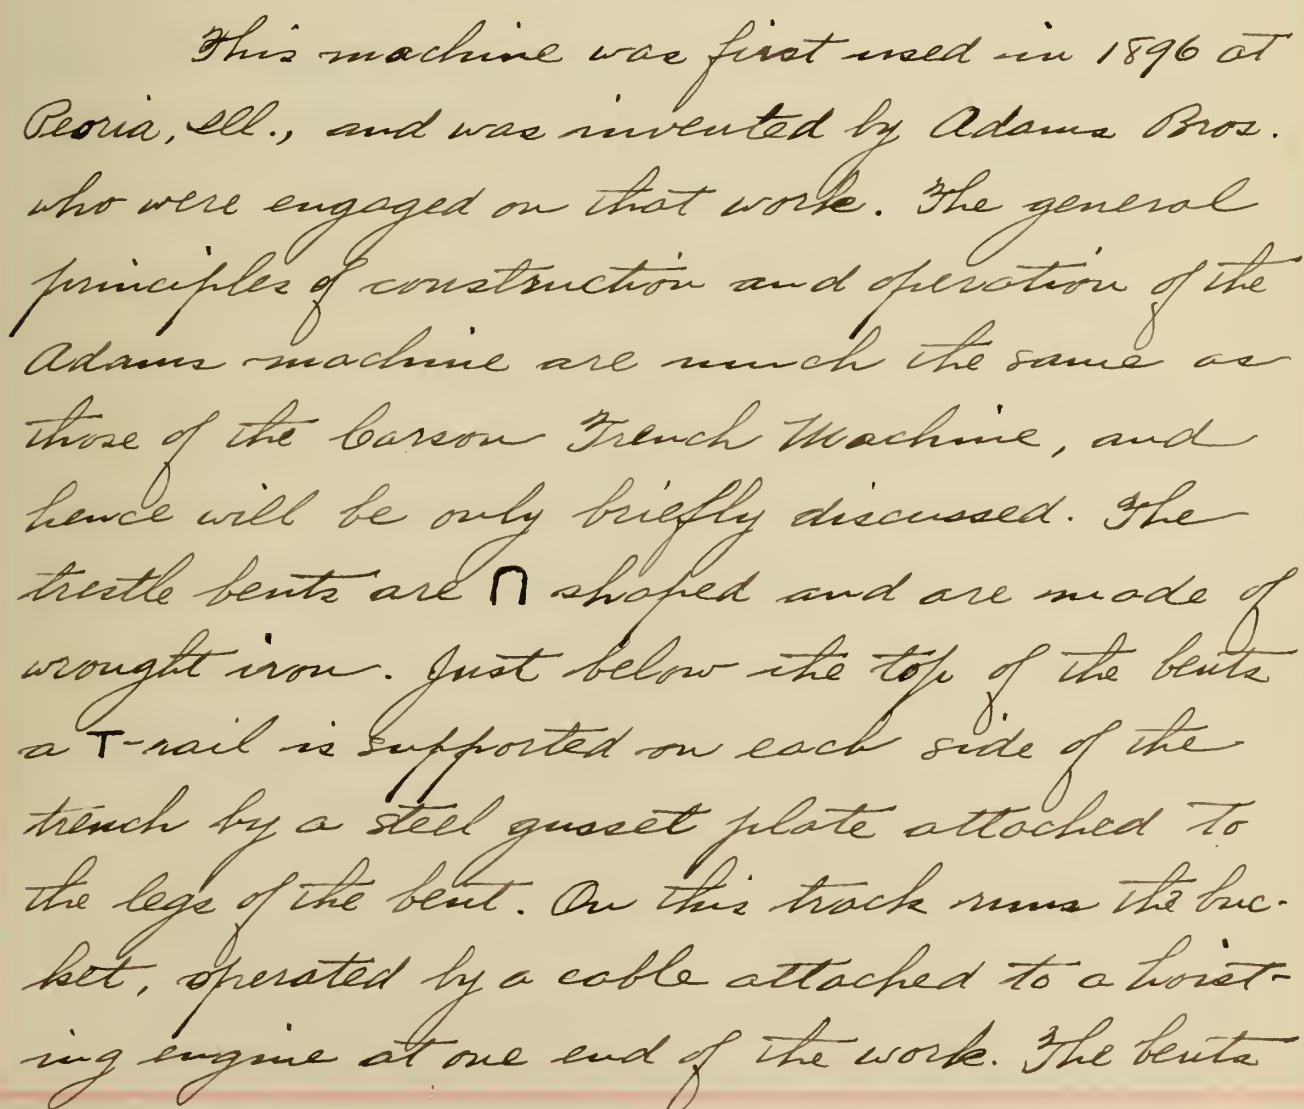 This machine was first used in 1896 at
Peoria, Ill., and was invented by Adams Bros.
who were engaged on that work. The general
principles of construction and operation of the
Adams machine are much the same as
those of the Carson Trench Machine, and
hence will be only briefly discussed. The
trestle bents are ∩ shaped and are made of
wrought iron. Just below the top of the bents
a T-rail is supported on each side of the
trench by a steel gusset plate attached to
the legs of the bent. On this track runs the buc-
ket, operated by a cable attached to a hoist-
ing engine at one end of the work. The bents